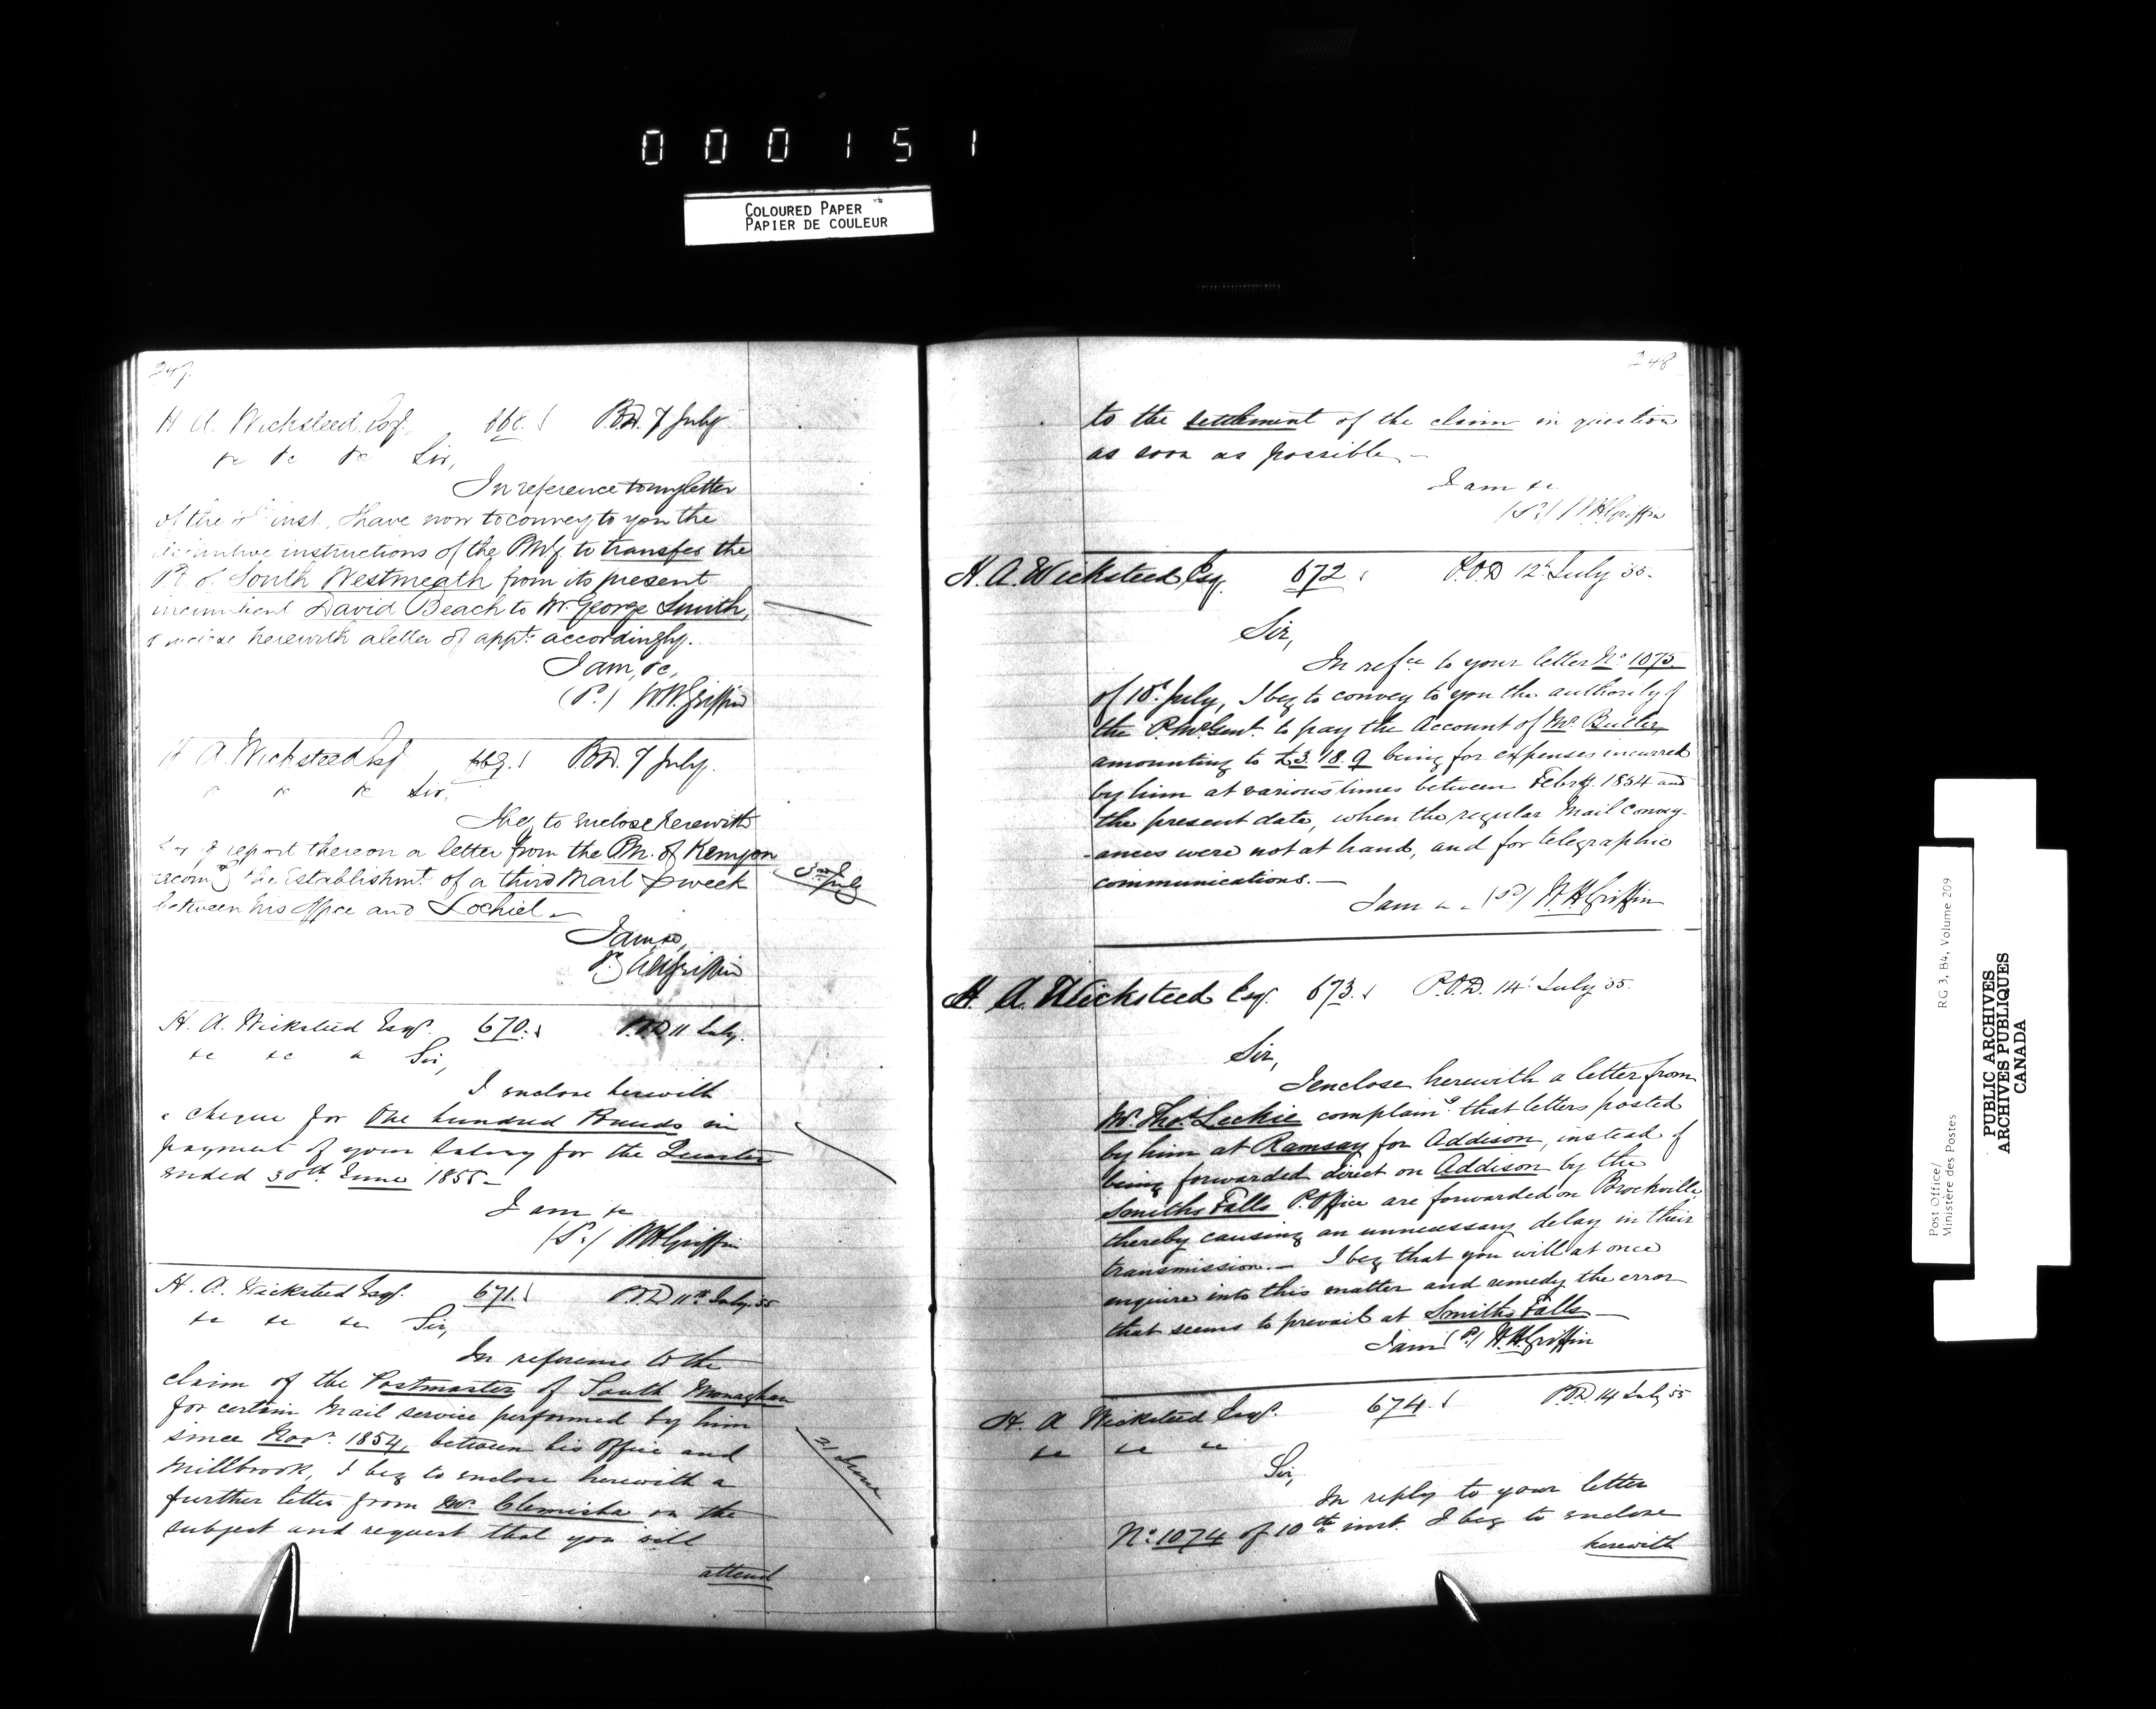 000151
COLOURED PAPER
PAPIER DE COULEUR
247.
H A. Wicksteed Esq. 668. P.O.D. 7 July
&c &c &c Sir,
In reference to my letter
of the inst. I have now to convey to you the
definitive instructions of the PMG. to transfer the
P.O. of South Westmeath from its present
incumbent David Beach to Mr. George Smith,
& enclose herewith a letter of appt. accordingly.
I am, &c,
(S.) W.H. Griffin
H A. Wicksteed Esq 669. P.O.D. 7 July.
&c &c Sir,
I beg to enclose herewith
for yr report thereon a letter from the P.M. of Kenyon
recomg the Establishmt. of a third Mail p week
between his Office and Lochiel
3rd July
I am, &c,
(S.) W H Griffin
H. A. Wicksteed Esqr. 670. P.O.D 11 July.
&c &c &c Sir,
I enclose herewith
a cheque for One hundred Pounds in
payment of your Salary for the Quarter
ended 30th June 1855—
I am &c
(S.) W H Griffin
H. A. Wicksteed Esqr. 671. P.O.D 11th July. 55
&c &c &c Sir,
In reference to the
claim of the Postmaster of South Monaghan
for certain mail service performed by him
since Novr. 1854, between his Office and
Millbrook, I beg to enclose herewith a
further letter from Mr. Clemisha on the
subject and request that you will
attend
21 June
248
to the settlement of the claim in question
as soon as possible.—
I am &c.
(S.) W H Griffin
H. A. Wicksteed Esq. 672. P.O.D 12th July 55.
Sir,
In refce to your letter No. 1075
of 10th July, I beg to convey to you the authority of
the P.M. Genl. to pay the Account of Mr. Butler,
amounting to £3.18.9 being for expenses incurred
by him at various times between Febry. 1854 and
the present date, when the regular Mail Convey-
-ances were not at hand, and for telegraphic
communications.—
I am &c (S.) W. H. Griffin
H. A. Wicksteed Esqr. 673. P.O.D. 14th July 55.
Sir,
I enclose herewith a letter from
Mr. Thos. Leckie complaing. that letters posted
by him at Ramsay for Addison, instead of
being forwarded direct on Addison by the
Smiths Falls P. Office are forwarded on Brockville
thereby causing an unnecessary delay in their
transmission.— I beg that you will at once
enquire into this matter and remedy the error
that seems to prevail at Smiths Falls—
I am (S.) W. H. Griffin
H. A Wicksteed Esqr. 674. P.O.D. 14 July 55
&c &c &c
Sir,
In reply to your letter
No. 1074 of 10th inst. I beg to enclose
herewith
Post Office/
Ministère des Postes
RG 3, B4, Volume 209
PUBLIC ARCHIVES
ARCHIVES PUBLIQUES
CANADA